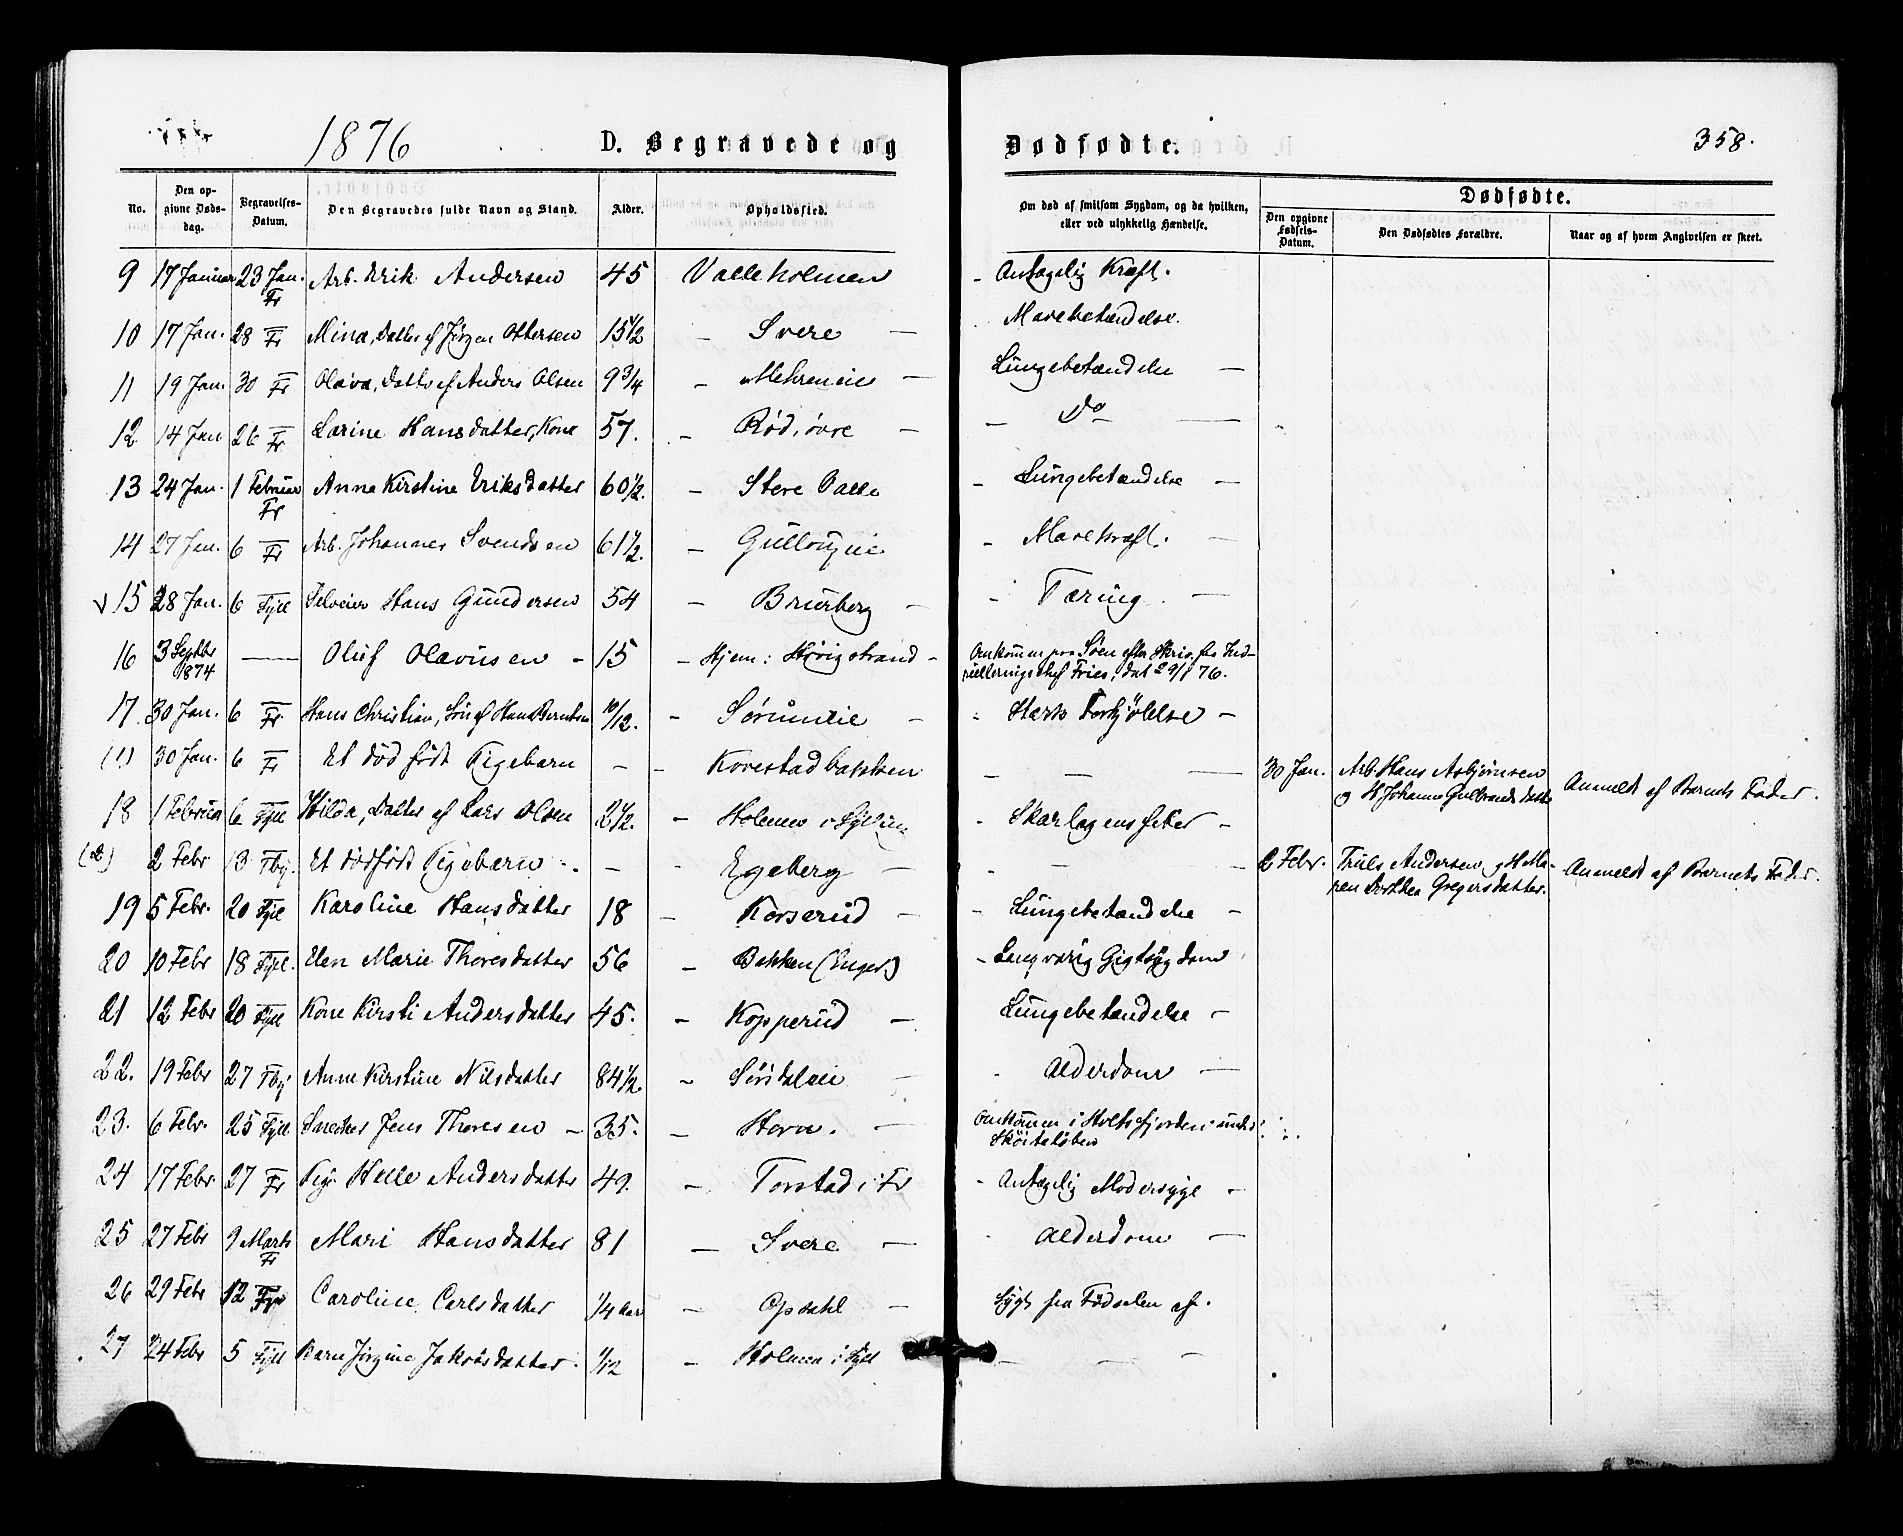 1876 D. Begravede og Dødfødte. 358.
No. Den opgivne Dødsdag. Begravelses-Datum. Den Begravedes fulde Navn og Stand. Alder. Opholdssted. Om død af smitsom Sygdom, og da hvilken, eller ved ulykkelig Hændelse. Dødfødte.
Den opgivne Fødsels-Datum. Den Dødfødtes Forældre. Naar og af hvem Angivelsen er skeet.
9 17 Januar 23 Jan. Fr Arb. Erik Andersen 45 Valleholmen - Antagelig Kræft.
10 17 Jan. 28 — Fr Mina, Datter af Jørgen Ottersen 15 1/2 - Svere - Mavebetændelse.
11 19 Jan. 30 — Fr Olava, Datter af Anders Olsen 9 3/4 - Mehreneie - Lungebetændelse -
12 14 Jan 26 — Fr Larine Hansdatter, Kone 57. - Rød, øvre - Do -
13 24 Jan. 1 Februar Fr Anne Kirstine Eriksdatter 60 1/2. - Store Valle - Lungebetændelse -
14 27 Jan. 6 — Fr Arb. Johannes Svendsen 61 1/2. - - Mavekræft. -
15 28 Jan. 6 — Syll Selveier Hans Gundersen 54 - Brurberg - Tæring. -
16 3 Septbr 1874 — Oluf Olavusen - 15 - Hjem: Høvigstrand - Omkommen paa Søen efter Skriv. fra Indrulleringschef Fries, dat 29/1 76.
17. 30 Jan. 6 — Fr. Hans Christian, Søn af Hans Berntsen 10/12. - Sørumeie - Stærk Forkjølelse -
(1) 30 Jan. 6 — Fr Et dødfødt Pigebarn - - Kovestadbakken - - - 30 Jan. Arb. Hans Asbjørnsen og H Johanne Gulbrandsdatter Anmeldt af Barnets Fader.
18 1 Februar 6 Syll Hilda, Datter af Lars Olsen 2 1/2. - Holmen i Sylling - Skarlagensfeber -
(2) 2 Febr 13 Tbg. Et dødfødt Pigebarn - - Egeberg - - - 2 Febr. Truls Andersen og H Maren Dorthea Gregersdatter. Anmeldt af Barnets Fader.
19 5 Febr. 20 Syll Karoline Hansdatter 18 - Korserud - Lungebetændelse -
20 10 Febr 18 Syll. Elen Marie Thoresdatter 56 - Bakken (Enger) - Langvarig Gigtsygdom
21 12 Febr 20 Syll Kone Kirsti Andersdatter 45. - Kopperud - Lungebetændelse -
22. 19 Febr 27 Tbg Anne Kirstine Nilsdatter 84 1/2. - Sørsdaleie - Alderdom -
23. 6 Febr. 25 Syll Snedker Jens Thoresen - 35. - Horn. - Omkommen i Holtsfjorden under Skøiteløben
24 17 Febr. 27 Fr Pige Helle Andersdatter 49. - Torstad i Fr - Antagelig Modersyge -
25 27 Febr 9 Marts Fr Mari Hansdatter 81 - Svere - Alderdom -
26 29 Febr 12 Caroline Carlsdatter 1/4 aar - Opsahl - Sygt fra Fødselen af.
27 24 Febr 5 Syll Barn Jørgine Jakobsdatter. 1/12 - Holmen i Syll - - -